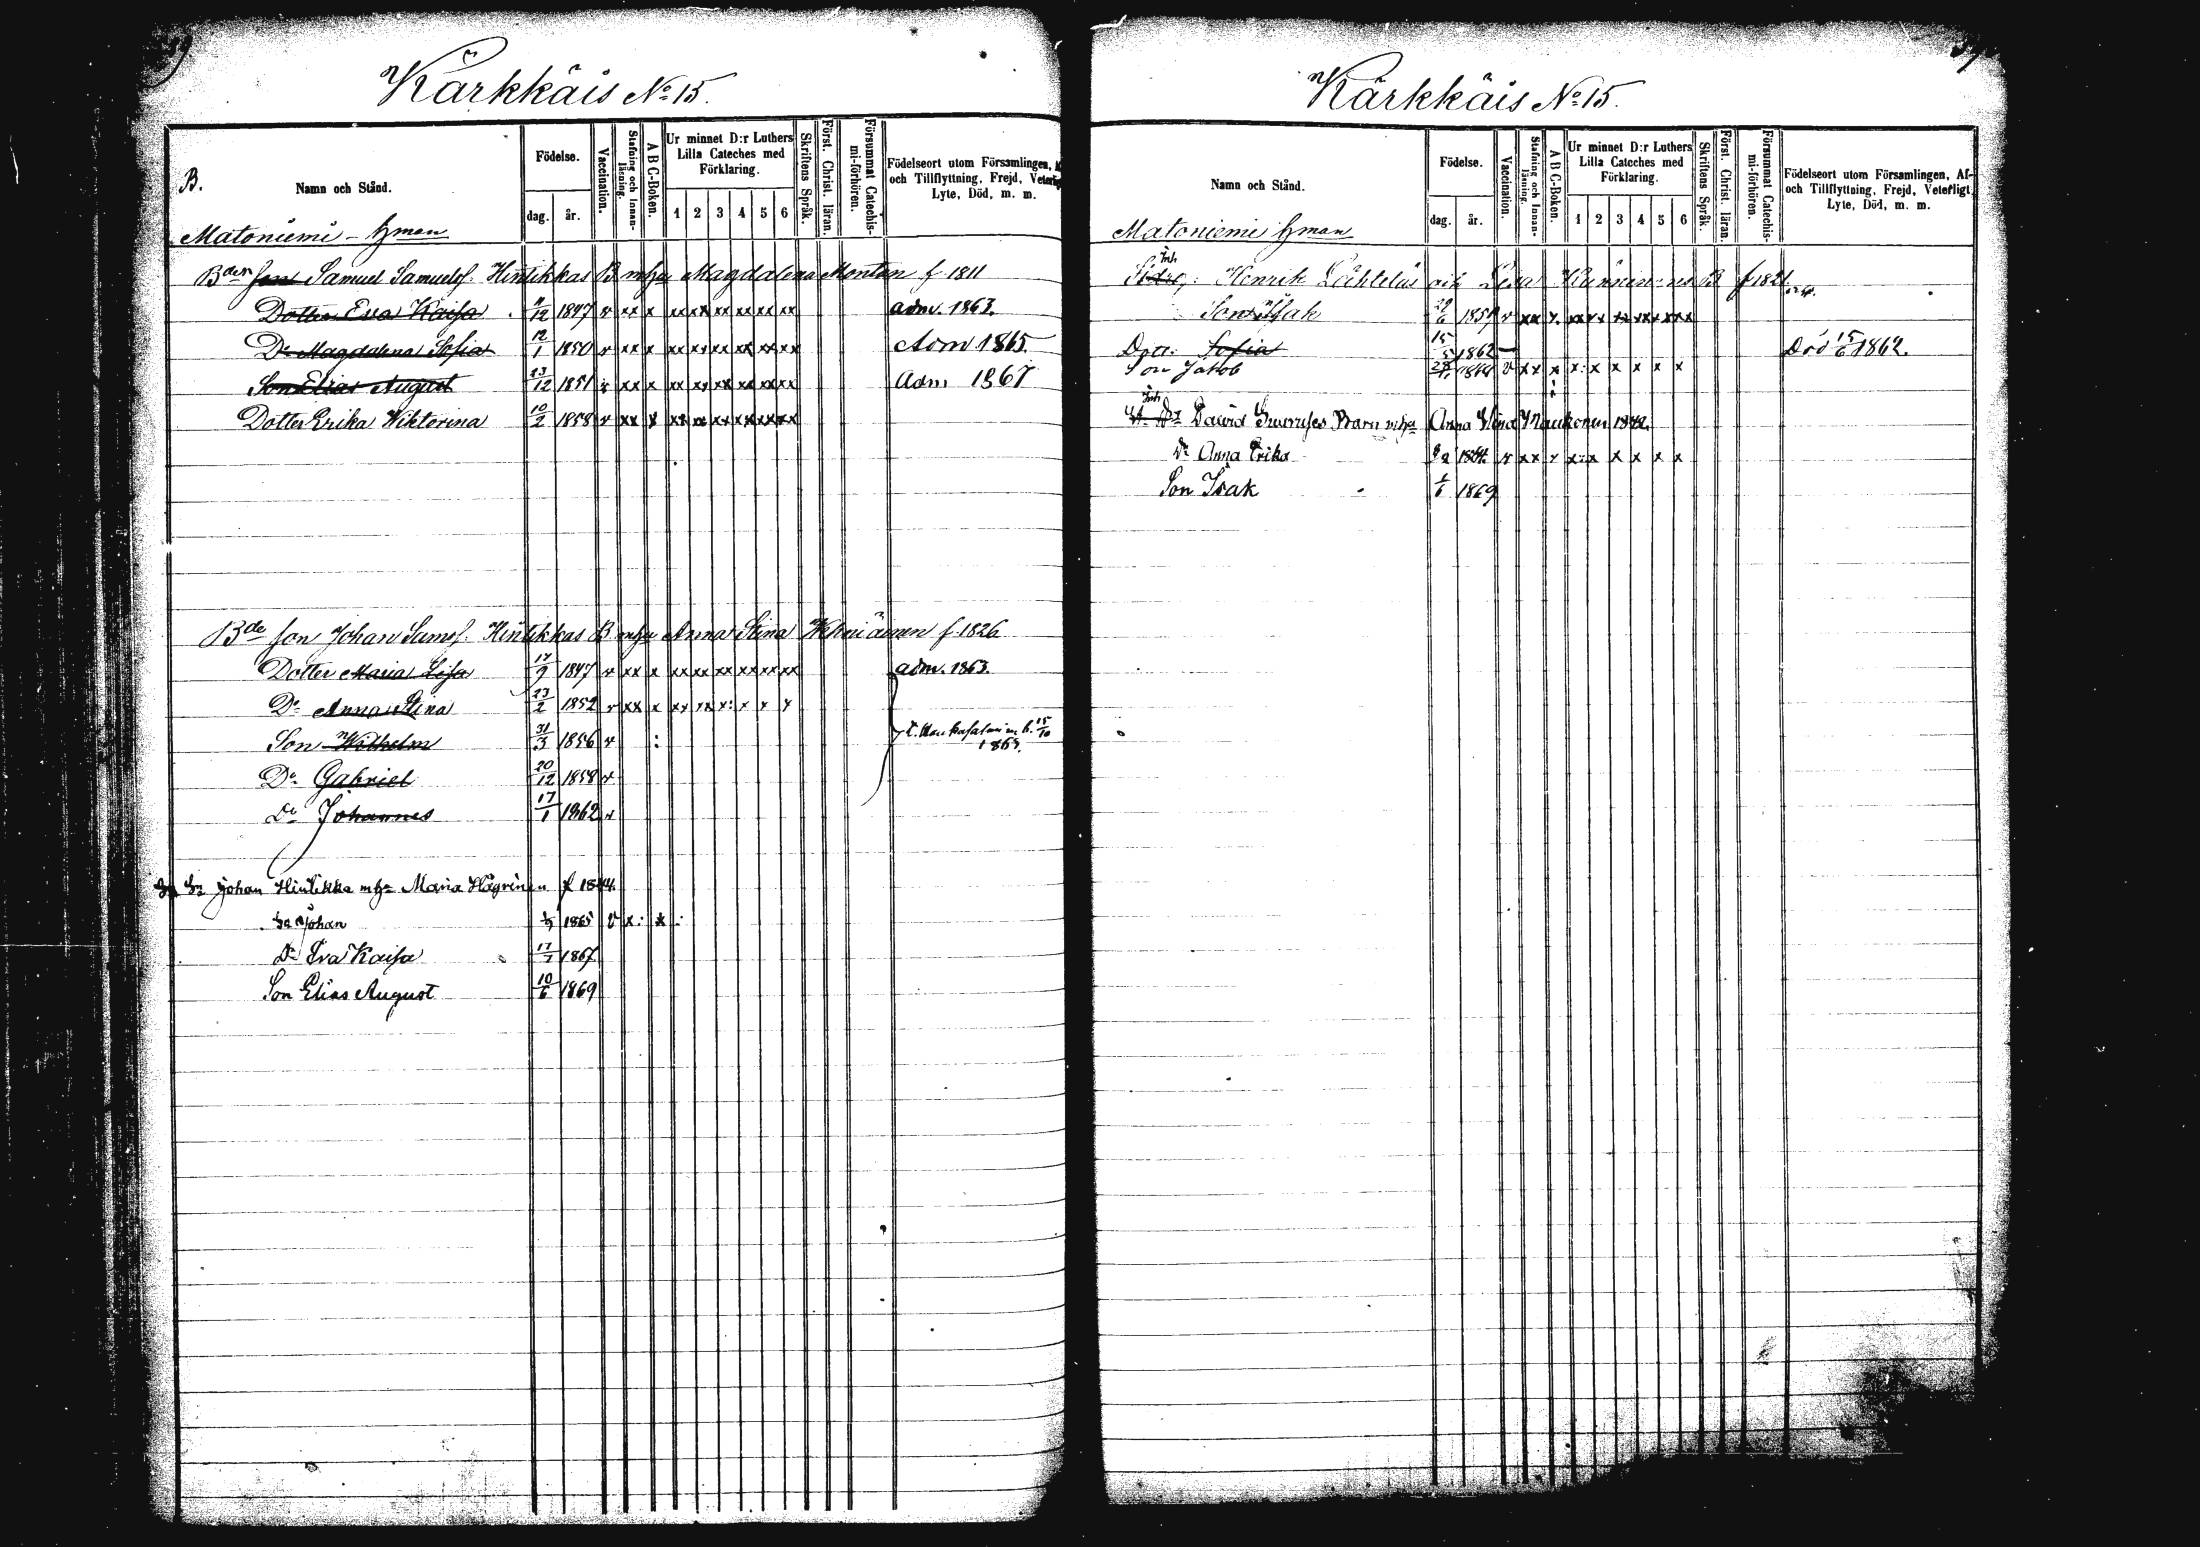 Kärkkäis No 15.
B.
Namn och Stånd.
Födelse.
dag. år.
Vaccination.
Stafning och Innanläsning.
A B C-Boken.
Ur minnet D:r Luthers Lilla Cateches med Förklaring.
1 2 3 4 5 6
Skriftens Språk.
Först. Christ. läran.
Försummat Catechismi-förhören.
Födelseort utom Församlingen,
och Tillflyttning, Frejd,
Lyte, Död, m. m.
Matoniemi – hman
Bden son Samuel Samuelsf. Hintikkas B mhu Magdalena Montan f 1811
Dotter Eva Kaisa 1847 v xx x xx xx xx xx xx xx adm. 1863.
Dr Magdalena Sofia 12/1 1850 v xx x xx xx xx xx xx xx Adm 1865.
Son Elias August 23/12 1851 v xx x xx xx xx xx xx xx Adm 1867
Dotter Erika Wiktorina 10/2 1858 v xx x xx xx xx xx xx xx
Bde son Johan Samsf. Hintikkas B mhu Anna Stina f 1826
Dotter Maria Lisa 17/9 1847 v xx x xx xx xx xx xx xx adm. 1863.
Dr Anna Stina 23/2 1852 v xx x xx xx x: x x x
Son Wilhelm 31/3 1856 v : 15/10
Do Gabriel 20/12 1858 v
Do Johannes 17/1 1862 v
Johan Hintikka mh Maria Hägrinen f 1844.
Johan 1865 v x: x :
Dr Eva Kaisa 1867
Son Elias August 10/6 1869
Kärkkäis No 15.
Namn och Stånd.
Födelse.
dag. år.
Vaccination.
Stafning och Innanläsning.
A B C-Boken.
Ur minnet D:r Luthers Lilla Cateches med Förklaring.
1 2 3 4 5 6
Skriftens Språk.
Först. Christ. läran.
Försummat Catechismi-förhören.
Födelseort utom Församlingen, Af-
och Tillflyttning, Frejd, Veterligt
Lyte, Död, m. m.
Matoniemi hman
Inh
Henrik och Lisa B f 1821
Son Isak v xx x xx xx xx xx xx xx
Dotr: Sofia 15/5 1862 – Död 15/6 1862.
Son Jakob v xx x x: x x x x x
Inh
David Barn mh Anna Stina
Dr Anna Erika v xx x x: x x x x x
Son Isak 1/6 1869